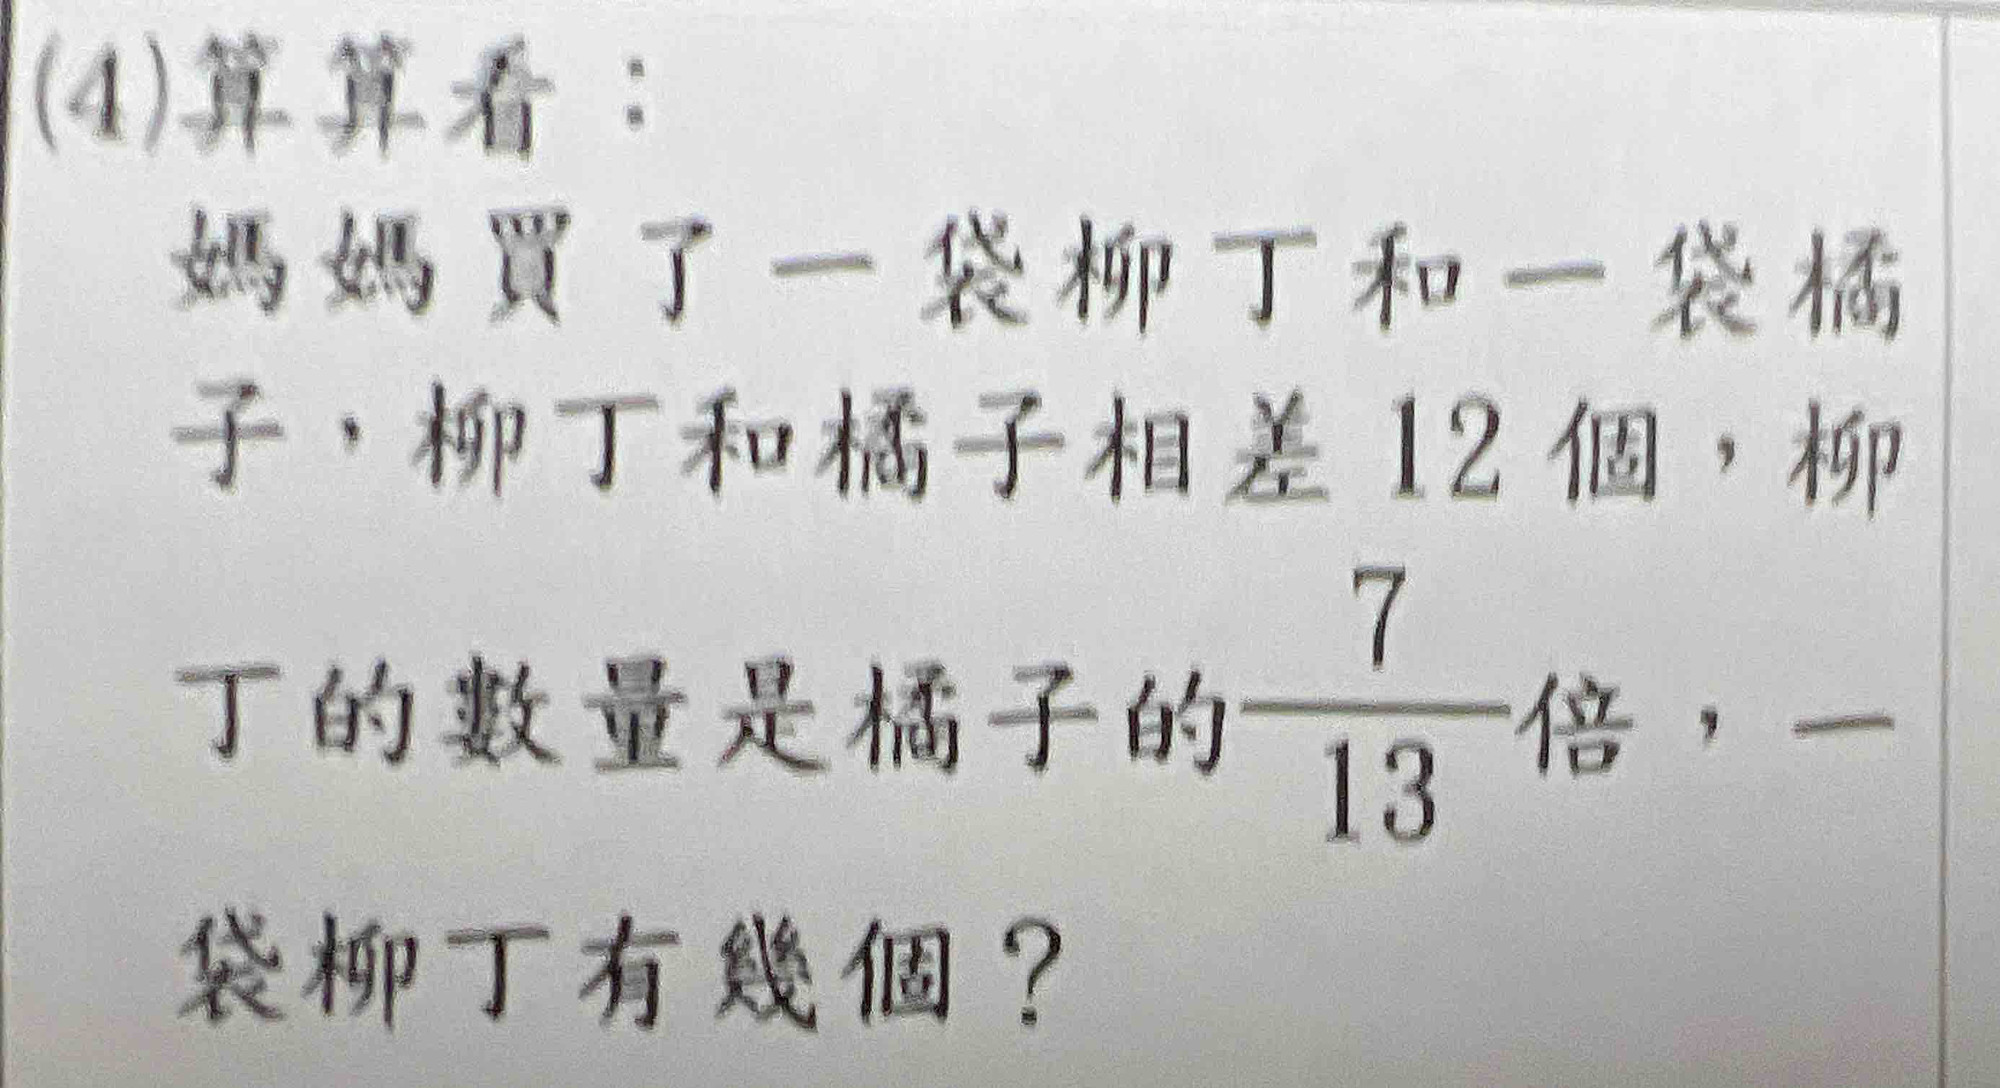 (4)算算看：
媽媽買了一袋柳丁和一袋橘
子，柳丁和橘子相差 12 個，柳
丁的數量是橘子的7/13倍，一
袋柳丁有幾個？